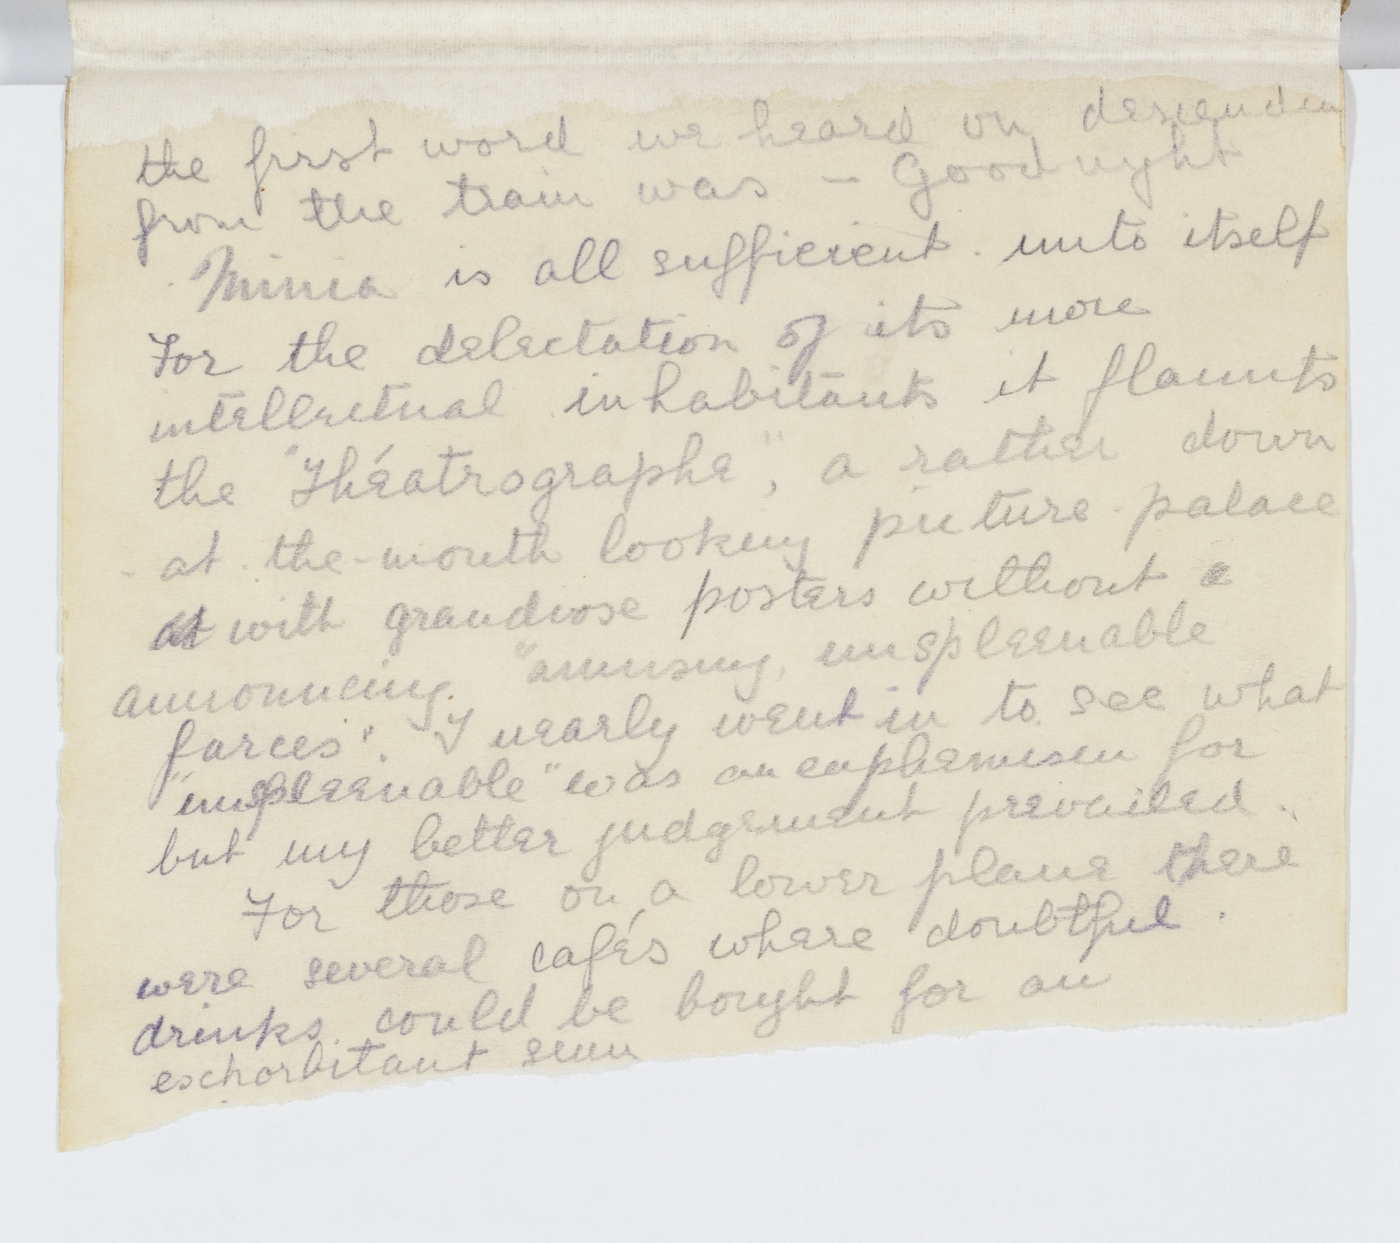 the first word we heard on descendin
from the train was – Good night
Minia is all sufficient unto itself
For the delectation of its more
intellectual inhabitants it flaunts
the "Théatrographe", a rather down
- at - the - mouth looking picture - palace
with grandiose posters without
announcing "amusing, unspleenable
farces". I nearly went in to see what
"unspleenable" was an euphemism for
but my better judgement prevailed.
For those on a lower plane there
were several cafés where doubtful
drinks could be bought for an
exchorbitant sum